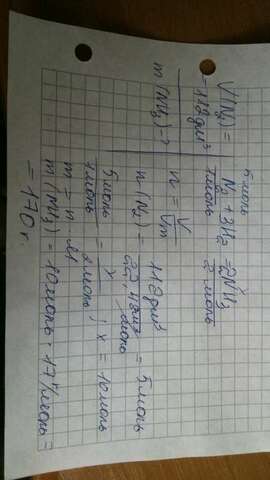 V(N₂) =
= 112 дм³
m(NH₃) - ?
5 моль
N₂ + 3H₂ = 2NH₃
1 моль 2 моль
n = V/Vm
n(N₂) = 112 дм³ / 22,4 дм³/моль = 5 моль
5 моль / 1 моль = x / 2 моль ; x = 10 моль
m = n · M
m(NH₃) = 10 моль · 17 г/моль =
= 170 г.